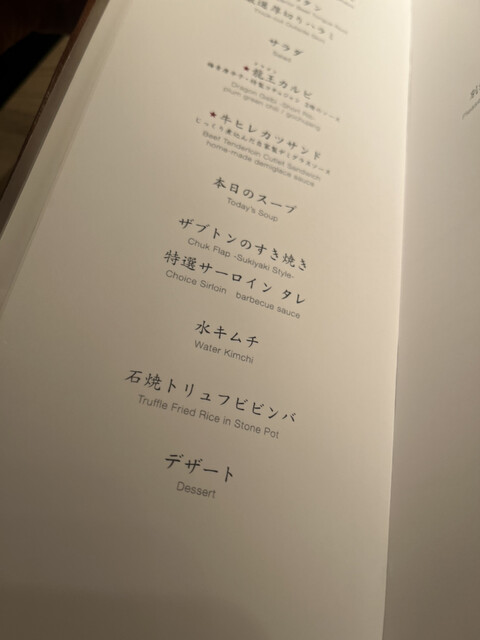 タン
厚切りハラミ
サラダ
Salad
★龍王カルビ
Dragon Galbi -Short Rib-
shum green chili / gochujang
★牛ヒレカツサンド
じっくり煮込んだ自家製デミグラスソース
Beef Tenderloin Cutlet Sandwich
home-made demiglace sauce
本日のスープ
Today's Soup
ザブトンのすき焼き
Chuk Flap -Sukiyaki Style-
特選サーロイン タレ
Choice Sirloin barbecue sauce
水キムチ
Water Kimchi
石焼トリュフビビンバ
Truffle Fried Rice in Stone Pot
デザート
Dessert